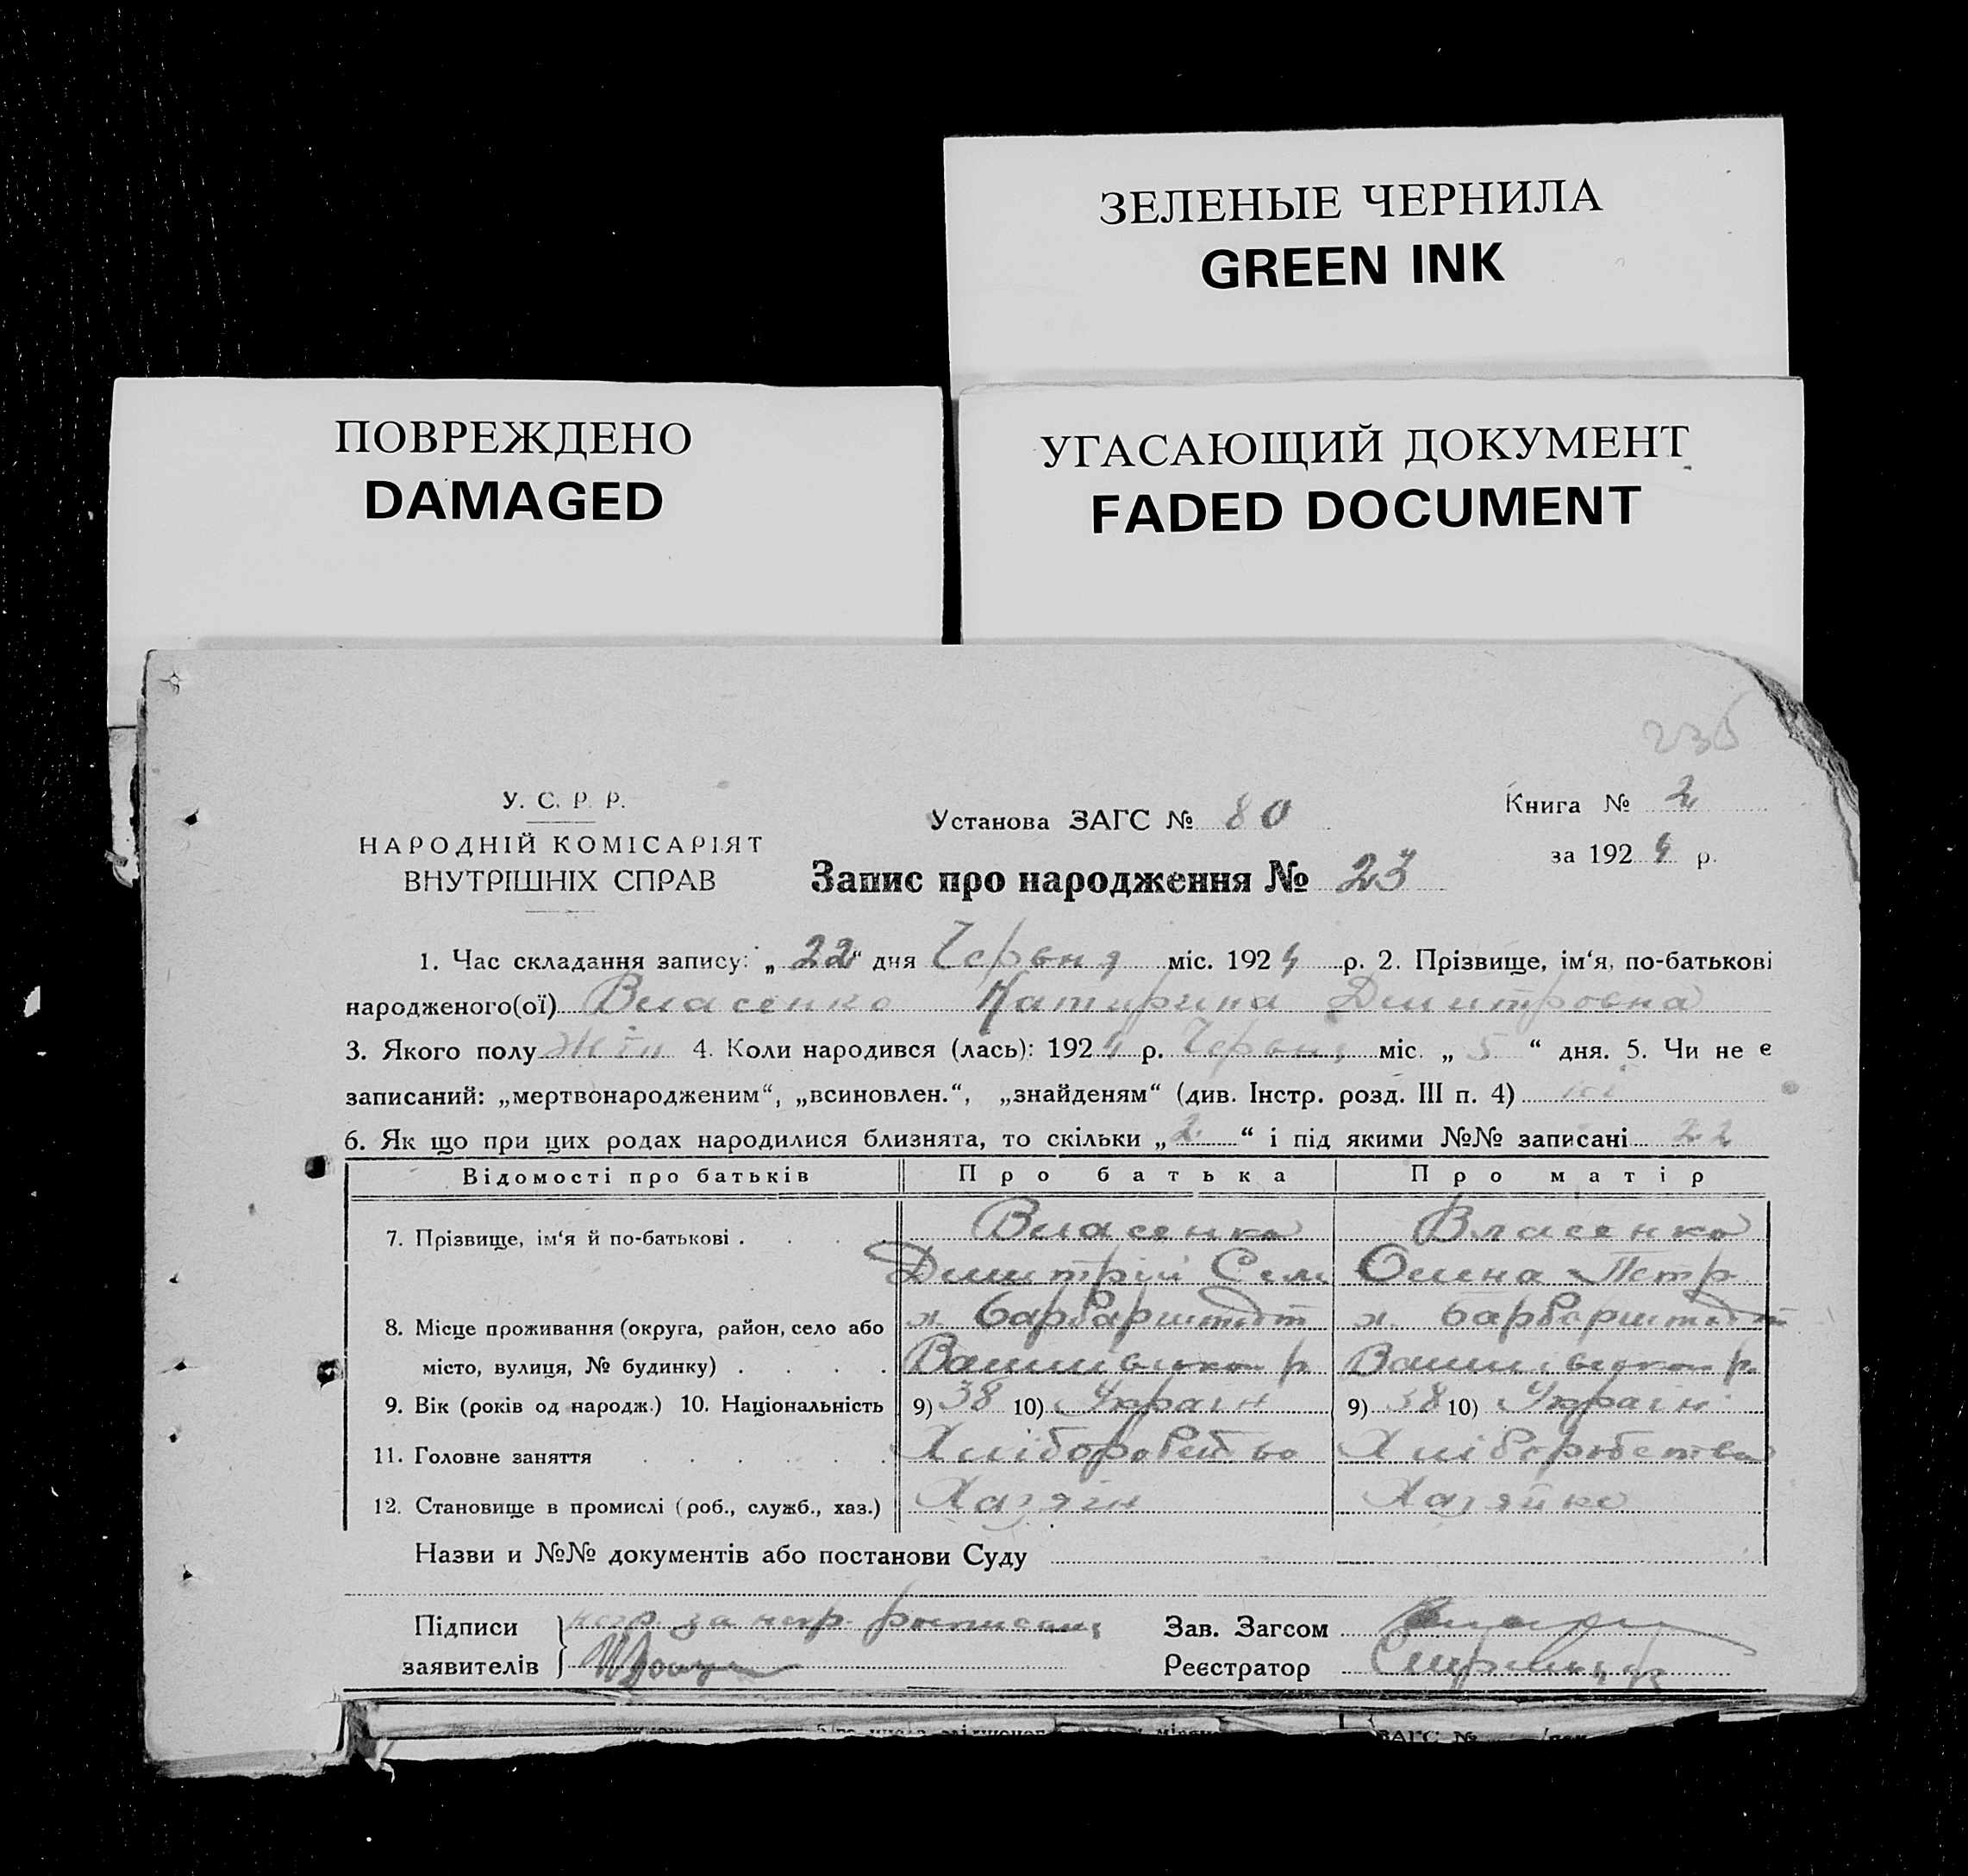 ЗЕЛЕНЫЕ ЧЕРНИЛА
GREEN INK
ПОВРЕЖДЕНО
DAMAGED
УГАСАЮЩИЙ ДОКУМЕНТ
FADED DOCUMENT
235
У. С. Р. Р.
НАРОДНІЙ КОМІСАРІЯТ
ВНУТРІШНІХ СПРАВ
Установа ЗАГС № 80
Запис про народження № 23
Книга № 2
за 1924 р.
1. Час складання запису: „22“ дня Червня міс. 1924 р. 2. Прізвище, ім‘я, по-батькові
народженого(ої) Власенко Катирина Дмитровна
3. Якого полу жін 4. Коли народився (лась): 1924 р. Червня міс. „5“ дня. 5. Чи не є
записаний: „мертвонародженим“, „всиновлен.“, „знайденям“ (див. Інстр. розд. III п. 4) ні
6. Як що при цих родах народилися близнята, то скільки „2“ і під якими №№ записані 22
Відомості про батьків Про батька Про матір
7. Прізвище, ім‘я й по-батькові . . . . Власенко Власенко
Дмитрій Сем Олена Петр
8. Місце проживання (округа, район, село або х Барбарштадт х. Барбарштадт
місто, вулиця, № будинку) . . . . р р
9. Вік (років од народж.) 10. Національність 9) 38 10) Україн 9) 38 10) Україн
11. Головне заняття . . . . . . Хліборобство Хліборобство
12. Становище в промислі (роб., служб., хаз.) Хазяін Хазяйка
Назви и №№ документів або постанови Суду
Підписи за
заявителів
Зав. Загсом
Реєстратор
ЗАГС №